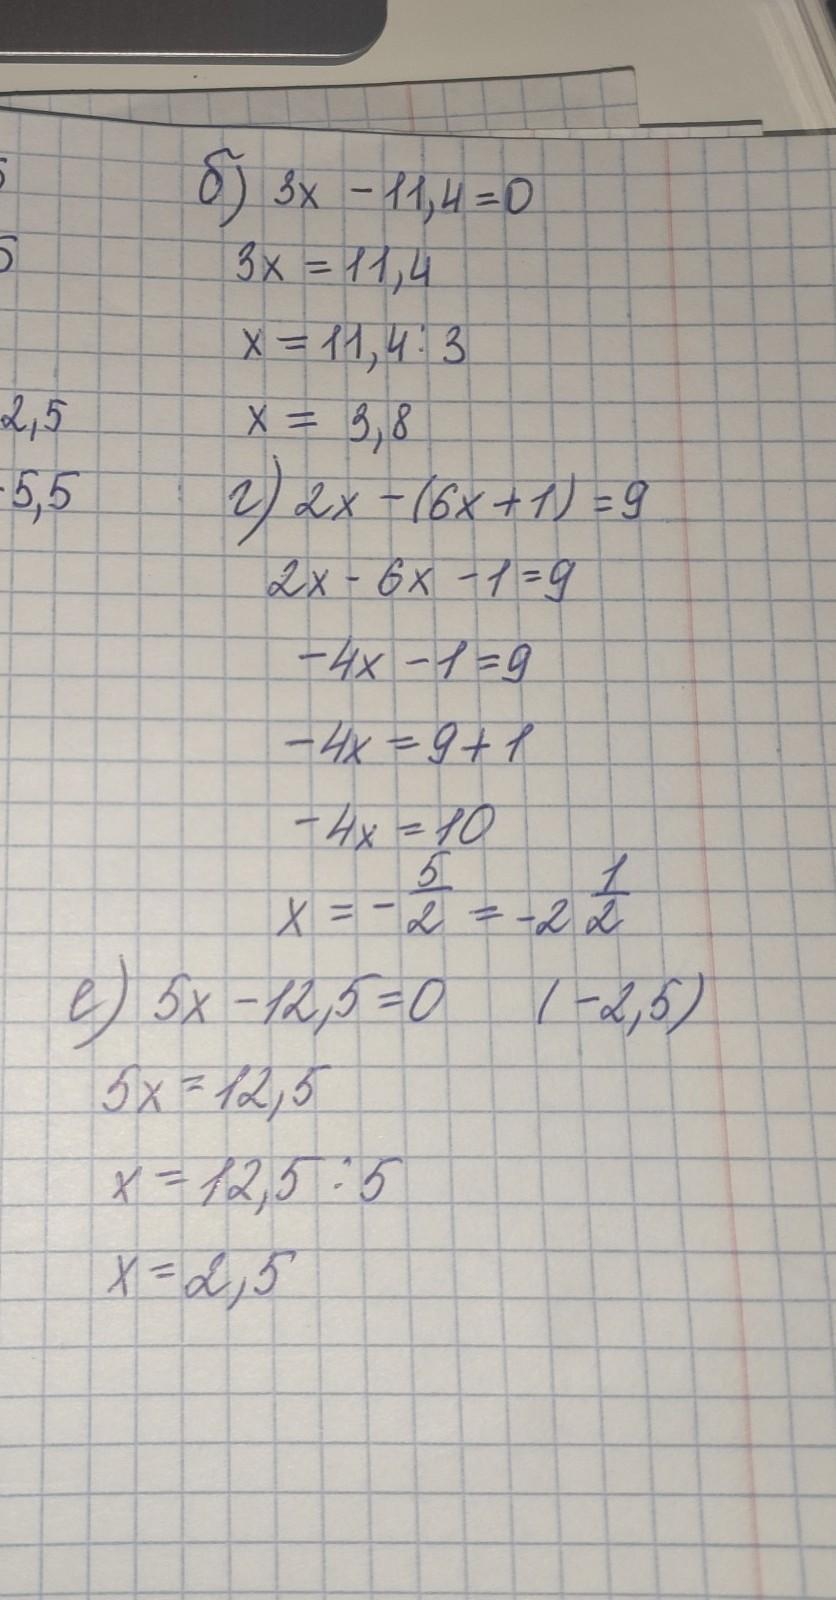 б) 3x - 11,4 = 0
3x = 11,4
x = 11,4 : 3
2,5
x = 3,8
-5,5
г) 2x - (6x + 1) = 9
2x - 6x - 1 = 9
-4x - 1 = 9
-4x = 9 + 1
-4x = 10
x = - 5/2 = -2 1/2
е) 5x - 12,5 = 0 (-2,5)
5x = 12,5
x = 12,5 : 5
x = 2,5